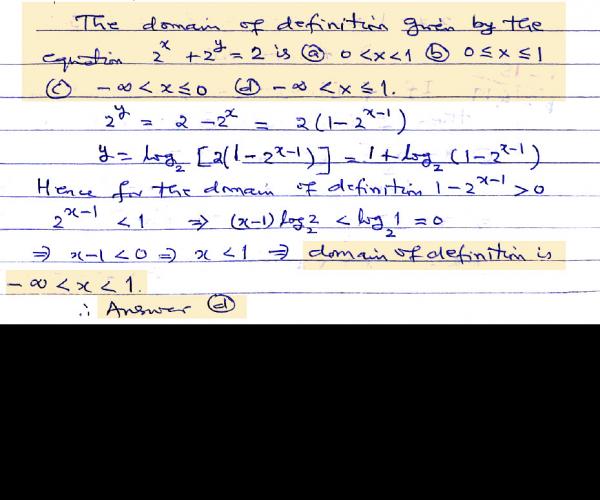 The domain of definition given by the
equation 2^x + 2^y = 2 is (a) 0 < x < 1 (b) 0 ≤ x ≤ 1
(c) - ∞ < x ≤ 0 (d) - ∞ < x ≤ 1.
2^y = 2 - 2^x = 2(1 - 2^{x-1})
y = log_2 [2(1 - 2^{x-1})] = 1 + log_2 (1 - 2^{x-1})
Hence for the domain of definition 1 - 2^{x-1} > 0
2^{x-1} < 1 ⇒ (x-1) log_2 2 < log_2 1 = 0
⇒ x-1 < 0 ⇒ x < 1 ⇒ domain of definition is
- ∞ < x < 1.
∴ Answer (d)